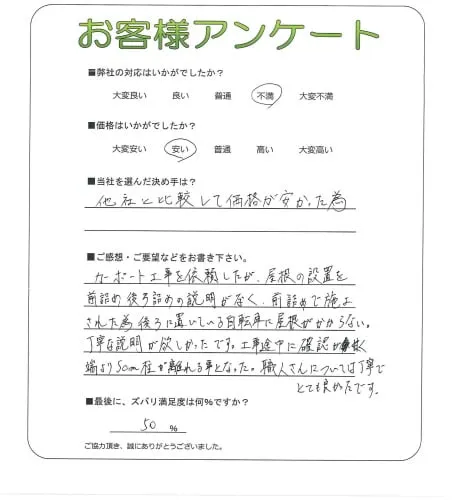 お客様アンケート
■弊社の対応はいかがでしたか？
大変良い 良い 普通 不満 大変不満
■価格はいかがでしたか？
大変安い 安い 普通 高い 大変高い
■当社を選んだ決め手は？
他社と比較して価格が安かった為
■ご感想・ご要望などをお書き下さい。
カーポート工事を依頼したが、屋根の設置を
前詰め後ろ詰めの説明がなく、前詰めで施工
された為後ろに置いている自転車に屋根がかからない。
丁寧な説明が欲しかったです。工事途中に確認が無く
端より50cm柱が離れる事となった。職人さんについては丁寧で
とても良かったです。
■最後に、ズバリ満足度は何％ですか？
50 %
ご協力頂き、誠にありがとうございました。